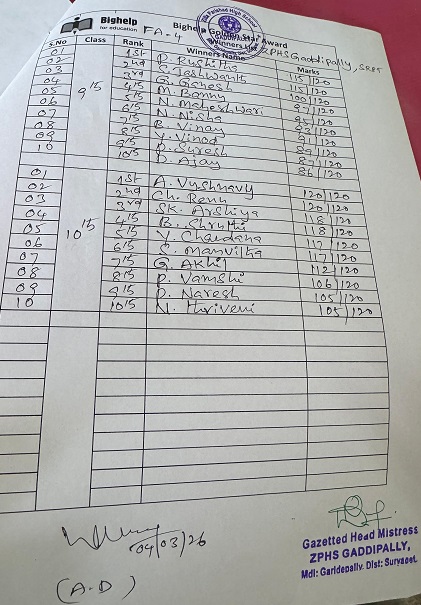 Bighelp
for education
FA-4
Bighelp Golden Star Award
Winners List
ZPHS Gaddipally, SRPT
S.No Class Rank Winners Name Marks
01 9th 1st P. Rushitha 115/120
02 2nd S. Jashwanth 115/120
03 3rd G. Ganesh 100/120
04 4th M. Bannu 97/120
05 5th N. Maheshwari 95/120
06 6th N. Nisha 93/120
07 7th B. Vinay 91/120
08 8th V. Vinod 89/120
09 9th D. Suresh 87/120
10 10th D. Ajay 86/120
01 10th 1st A. Vyshnavy 120/120
02 2nd Ch. Renu 120/120
03 3rd SK. Arshiya 118/120
04 4th B. Shruthi 118/120
05 5th V. Chandana 117/120
06 6th S. Manvitha 117/120
07 7th G. Akhil 112/120
08 8th P. Vamshi 106/120
09 9th D. Naresh 105/120
10 10th N. Thriveni 105/120
04/03/26
(A.D)
Gazetted Head Mistress
ZPHS GADDIPALLY,
Mdl: Garidepally. Dist: Suryapet.